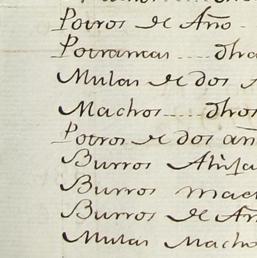 Potros de Año
Potrancas dhas
Mulas de dos
Machos dhos
Potros de dos añ
Burros
Burros mac
Burros de Añ
Mulas Macho